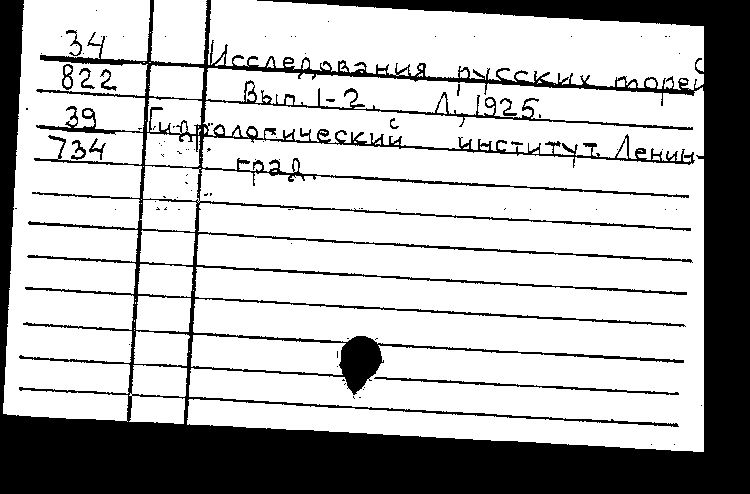 34 Исследования русских морей
822 Вып. 1-2. Л., 1925.
39 Гидрологический институт. Ленин-
734 град.